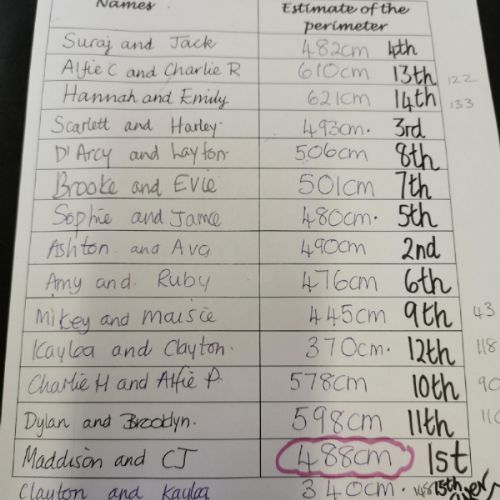 Names Estimate of the
perimeter
Suraj and Jack 482cm 4th
Alfie C and Charlie R 610cm 13th 122
Hannah and Emily 621cm 14th 133
Scarlett and Harley. 493cm. 3rd
D'Arcy and Layton. 506cm 8th
Brooke and Evie 501cm 7th
Sophie and Jamce 480cm. 5th
Ashton and Ava 490cm 2nd
Amy and Ruby 476cm 6th
Mikey and Maisie 445cm 9th 43
Kaylea and Clayton. 370cm. 12th 118
Charlie H and Alfie P. 578cm 10th 90
Dylan and Brooklyn. 598cm 11th 110
Maddison and CJ 488cm 1st
Clayton and Kaylea 340cm. 148 15th